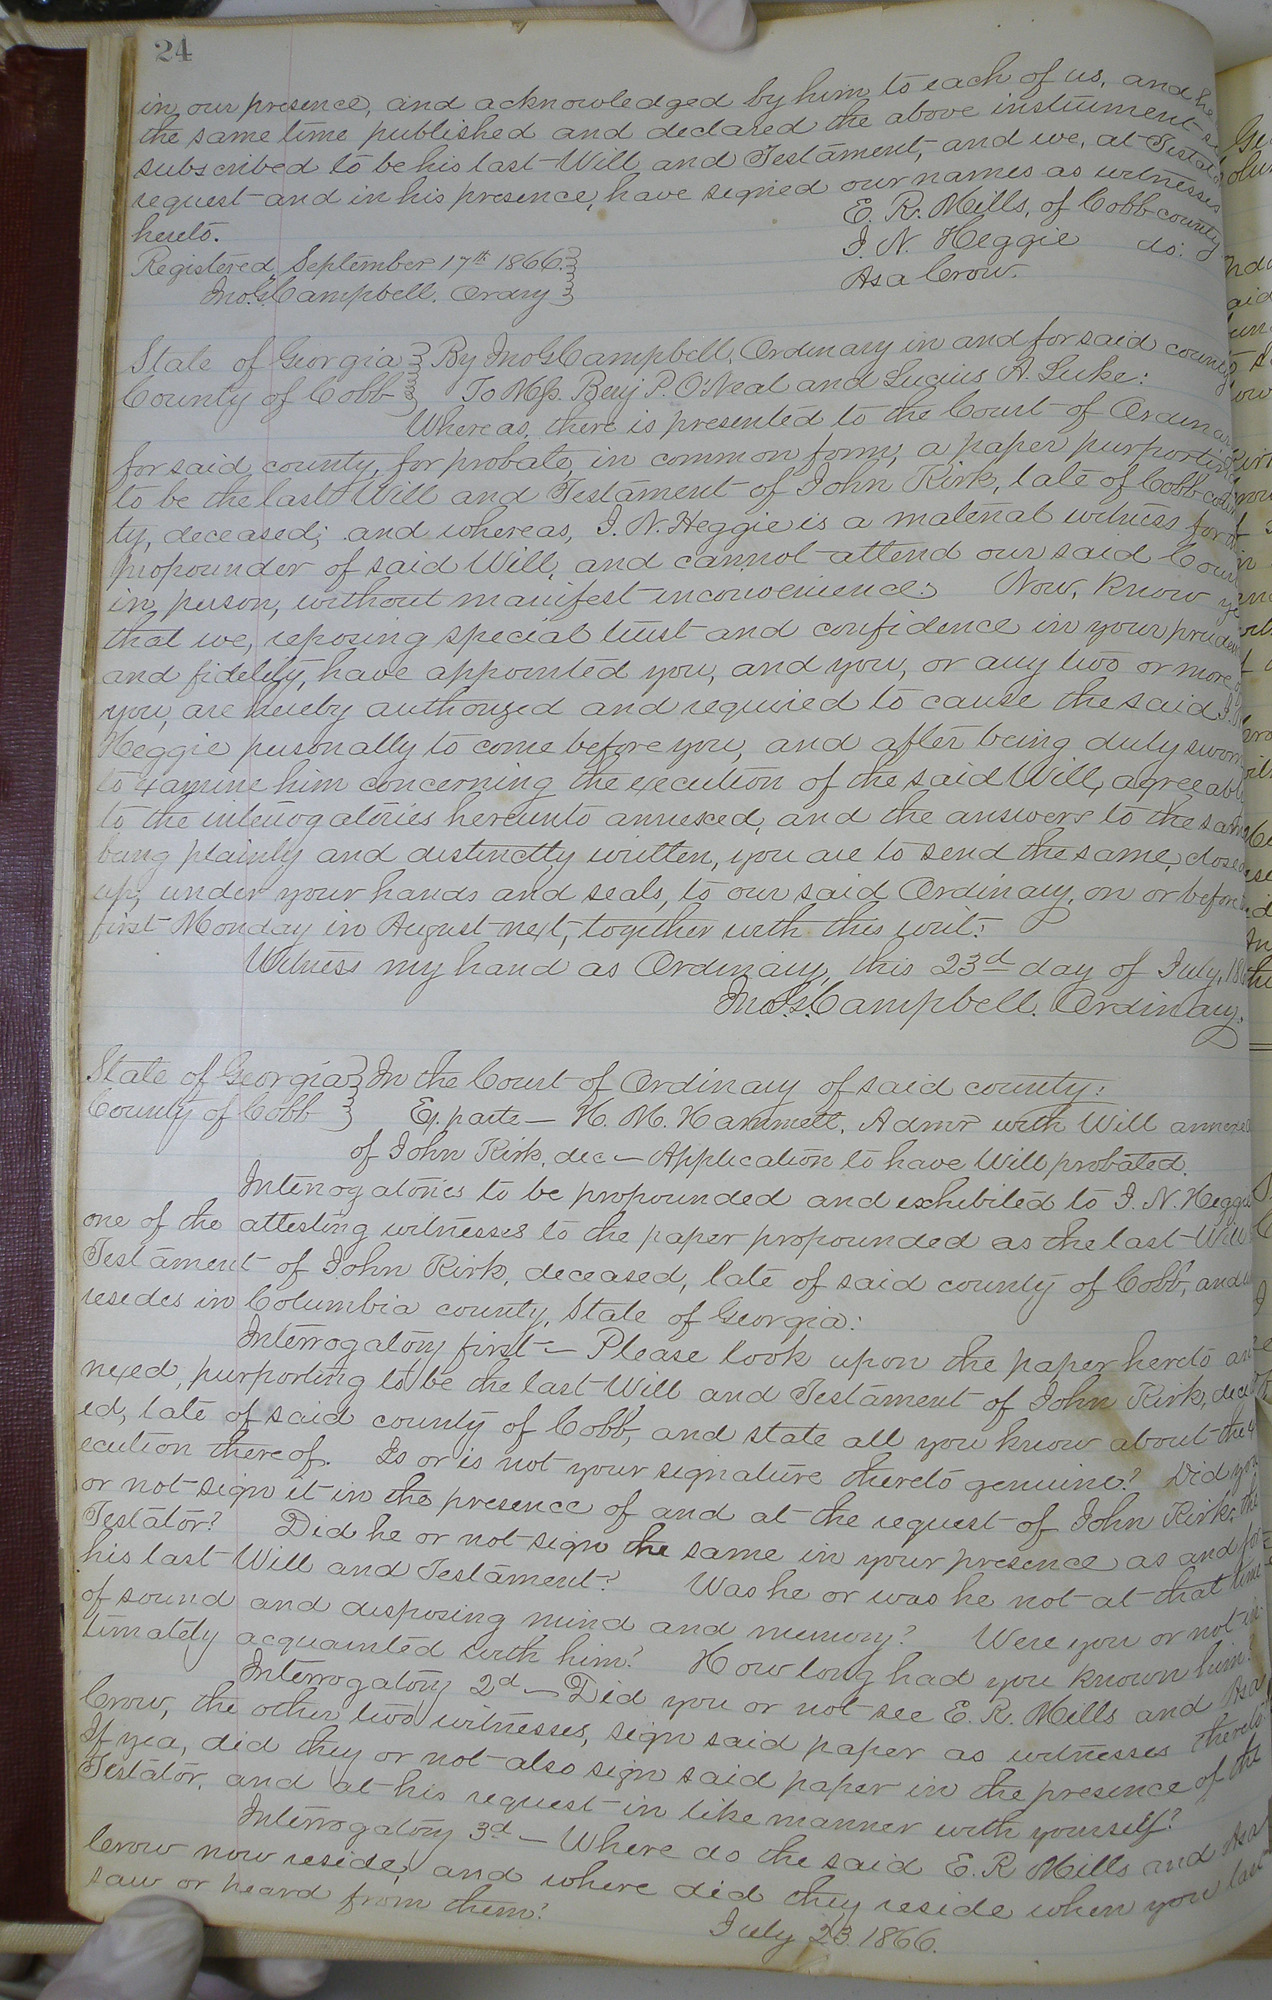 24
in our presence, and acknowledged by him to each of us, and he
the same time published and declared the above instrument so
subscribed to be his last Will and Testament, and we, at Testator's
request and in his presence, have signed our names as witnesses
hereto.
E. R. Mills, of Cobb county
I. N. Heggie do:
Asa Crow.
Registered, September 17th 1866.
Jno. G. Campbell, Ordry
State of Georgia
County of Cobb
By Jno G. Campbell, Ordinary in and for said county
To Benj P. O'Neal and Lucius A. Luke:
Whereas, there is presented to the Court of Ordinary
for said county, for probate in common form, a paper purporting
to be the last Will and Testament of John Kirk, late of Cobb coun
ty, deceased; and whereas, I. N. Heggie is a material witness for the
propounder of said Will, and cannot attend our said Court
in person, without manifest inconvenience: Now, Know ye
that we, reposing special trust and confidence in your prudence
and fidelity, have appointed you, and you, or any two or more of
you, are hereby authorized and required to cause the said I. N.
Heggie personally to come before you, and after being duly sworn
to examine him concerning the execution of the said Will, agreeable
to the interrogatories hereunto annexed, and the answers to the same
being plainly and distinctly written, you are to send the same, closed
up, under your hands and seals, to our said Ordinary, on or before the
first Monday in August next, together with this writ.
Witness my hand as Ordinary, this 23d day of July, 18
Jno. G. Campbell. Ordinary.
State of Georgia
County of Cobb
In the Court of Ordinary of said county:
Ex parte — H. M. Hammett, Admr with Will annexed
of John Kirk, dec — Application to have Will probated.
Interrogatories to be propounded and exhibited to I. N. Heggie
one of the attesting witnesses to the paper propounded as the last Will
Testament of John Kirk, deceased, late of said county of Cobb, and
resides in Columbia county, State of Georgia:
Interrogatory first — Please look upon the paper hereto an
nexed, purporting to be the last Will and Testament of John Kirk, deceas
ed, late of said county of Cobb, and state all you know about the ex
ecution thereof. Is or is not your signature thereto genuine? Did you
or not sign it in the presence of and at the request of John Kirk, the
Testator? Did he or not sign the same in your presence as and for
his last Will and Testament? Was he or was he not at that time
of sound and disposing mind and memory? Were you or not in
timately acquainted with him? How long had you known him?
Interrogatory 2d — Did you or not see E. R. Mills and Asa
Crow, the other two witnesses, sign said paper as witnesses thereto?
If yea, did they or not also sign said paper in the presence of the
Testator, and at his request in like manner with yourself?
Interrogatory 3d — Where do the said E. R Mills and Asa
Crow now reside, and where did they reside when you last
saw or heard from them?
July 23. 1866.